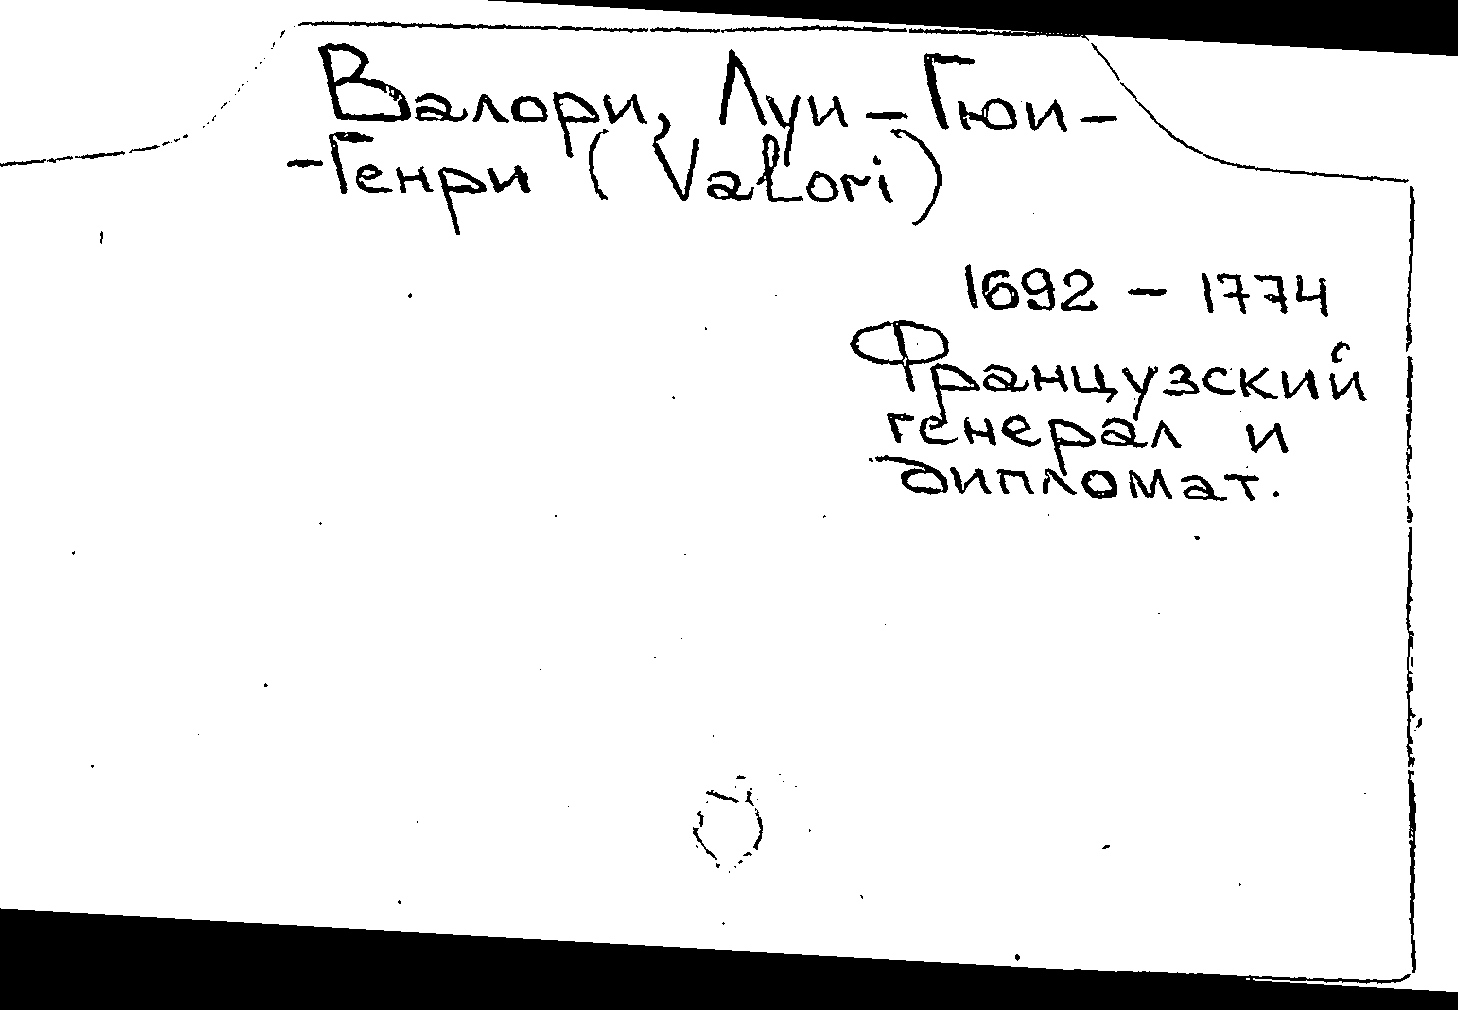 Валори, Луи-Гюи-
-Генри (Valori)
1692 - 1774
Французский
генерал и
дипломат.